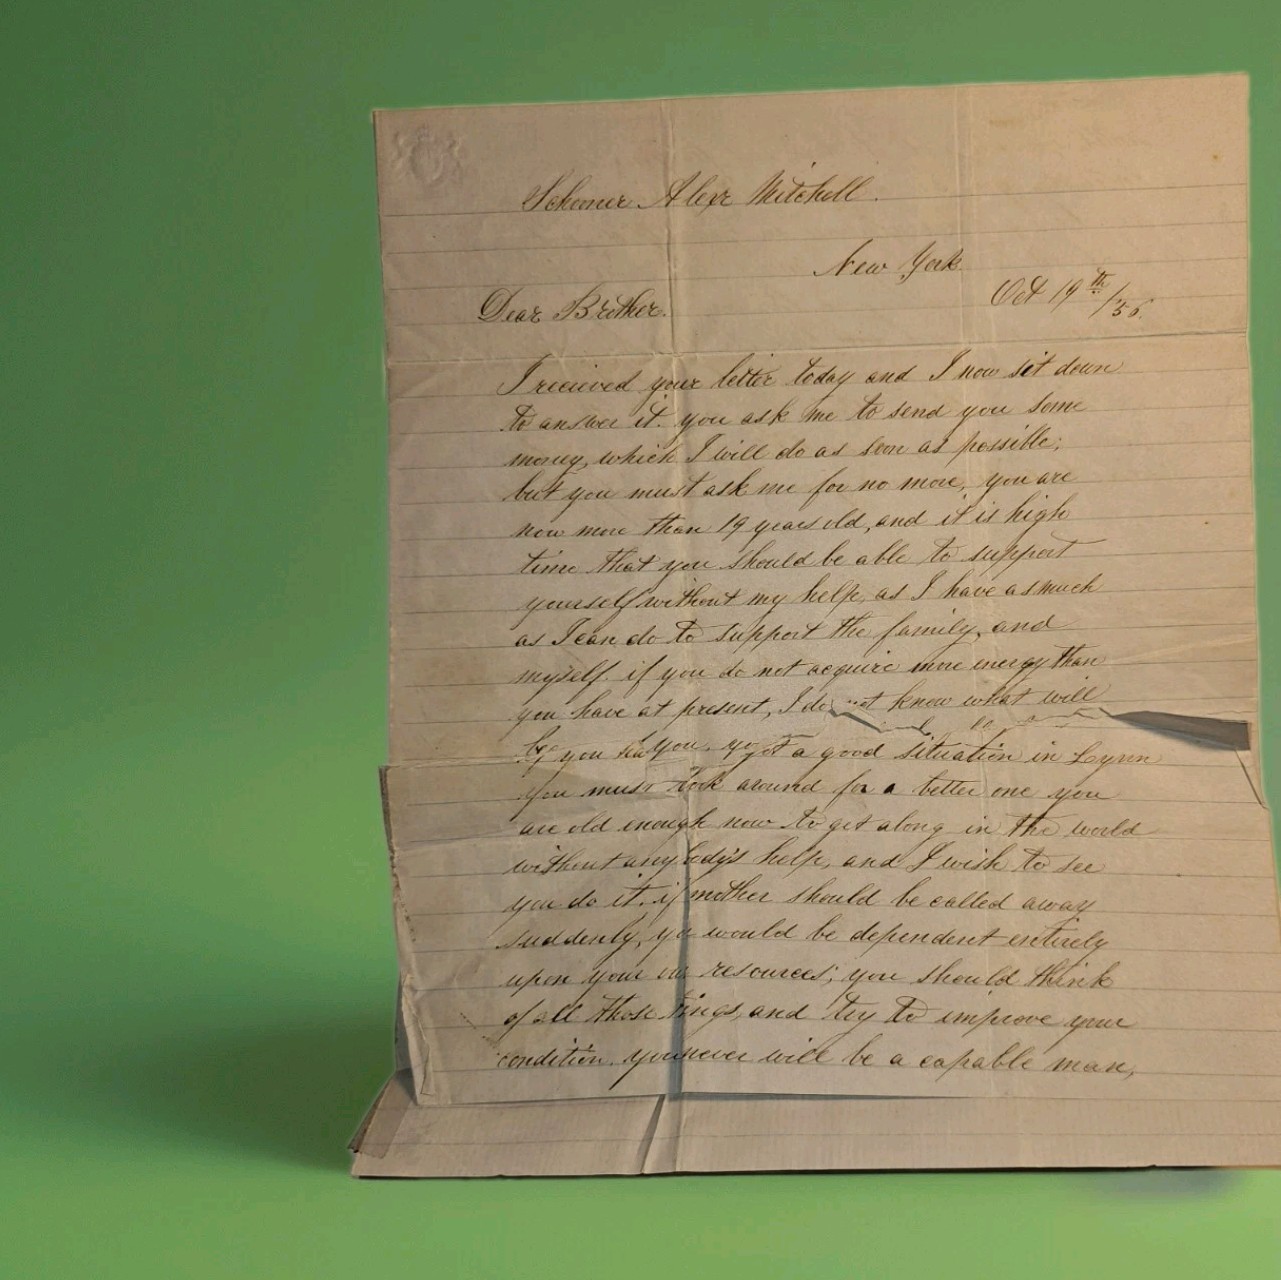 Schooner Alexr Mitchell.
New York
Oct 19th/56.
Dear Brother.
I recieved your letter today and I now sit down
to answer it. you ask me to send you some
money, which I will do as soon as possible;
but you must ask me for no more, you are
now more than 19 years old, and it is high
time that you should be able to support
yourself without my help, as I have as much
as I can do to support the family, and
myself. if you do not acquire more energy than
you have at present, I do not know what will
you. got a good situation in Lynn
you must look around for a better one you
are old enough now to get along in the world
without any body's help, and I wish to see
you do it. if mother should be called away
suddenly, yo would be dependent entirely
upon your resources; you should think
of all those and try to improve your
condition. you never will be a capable man,